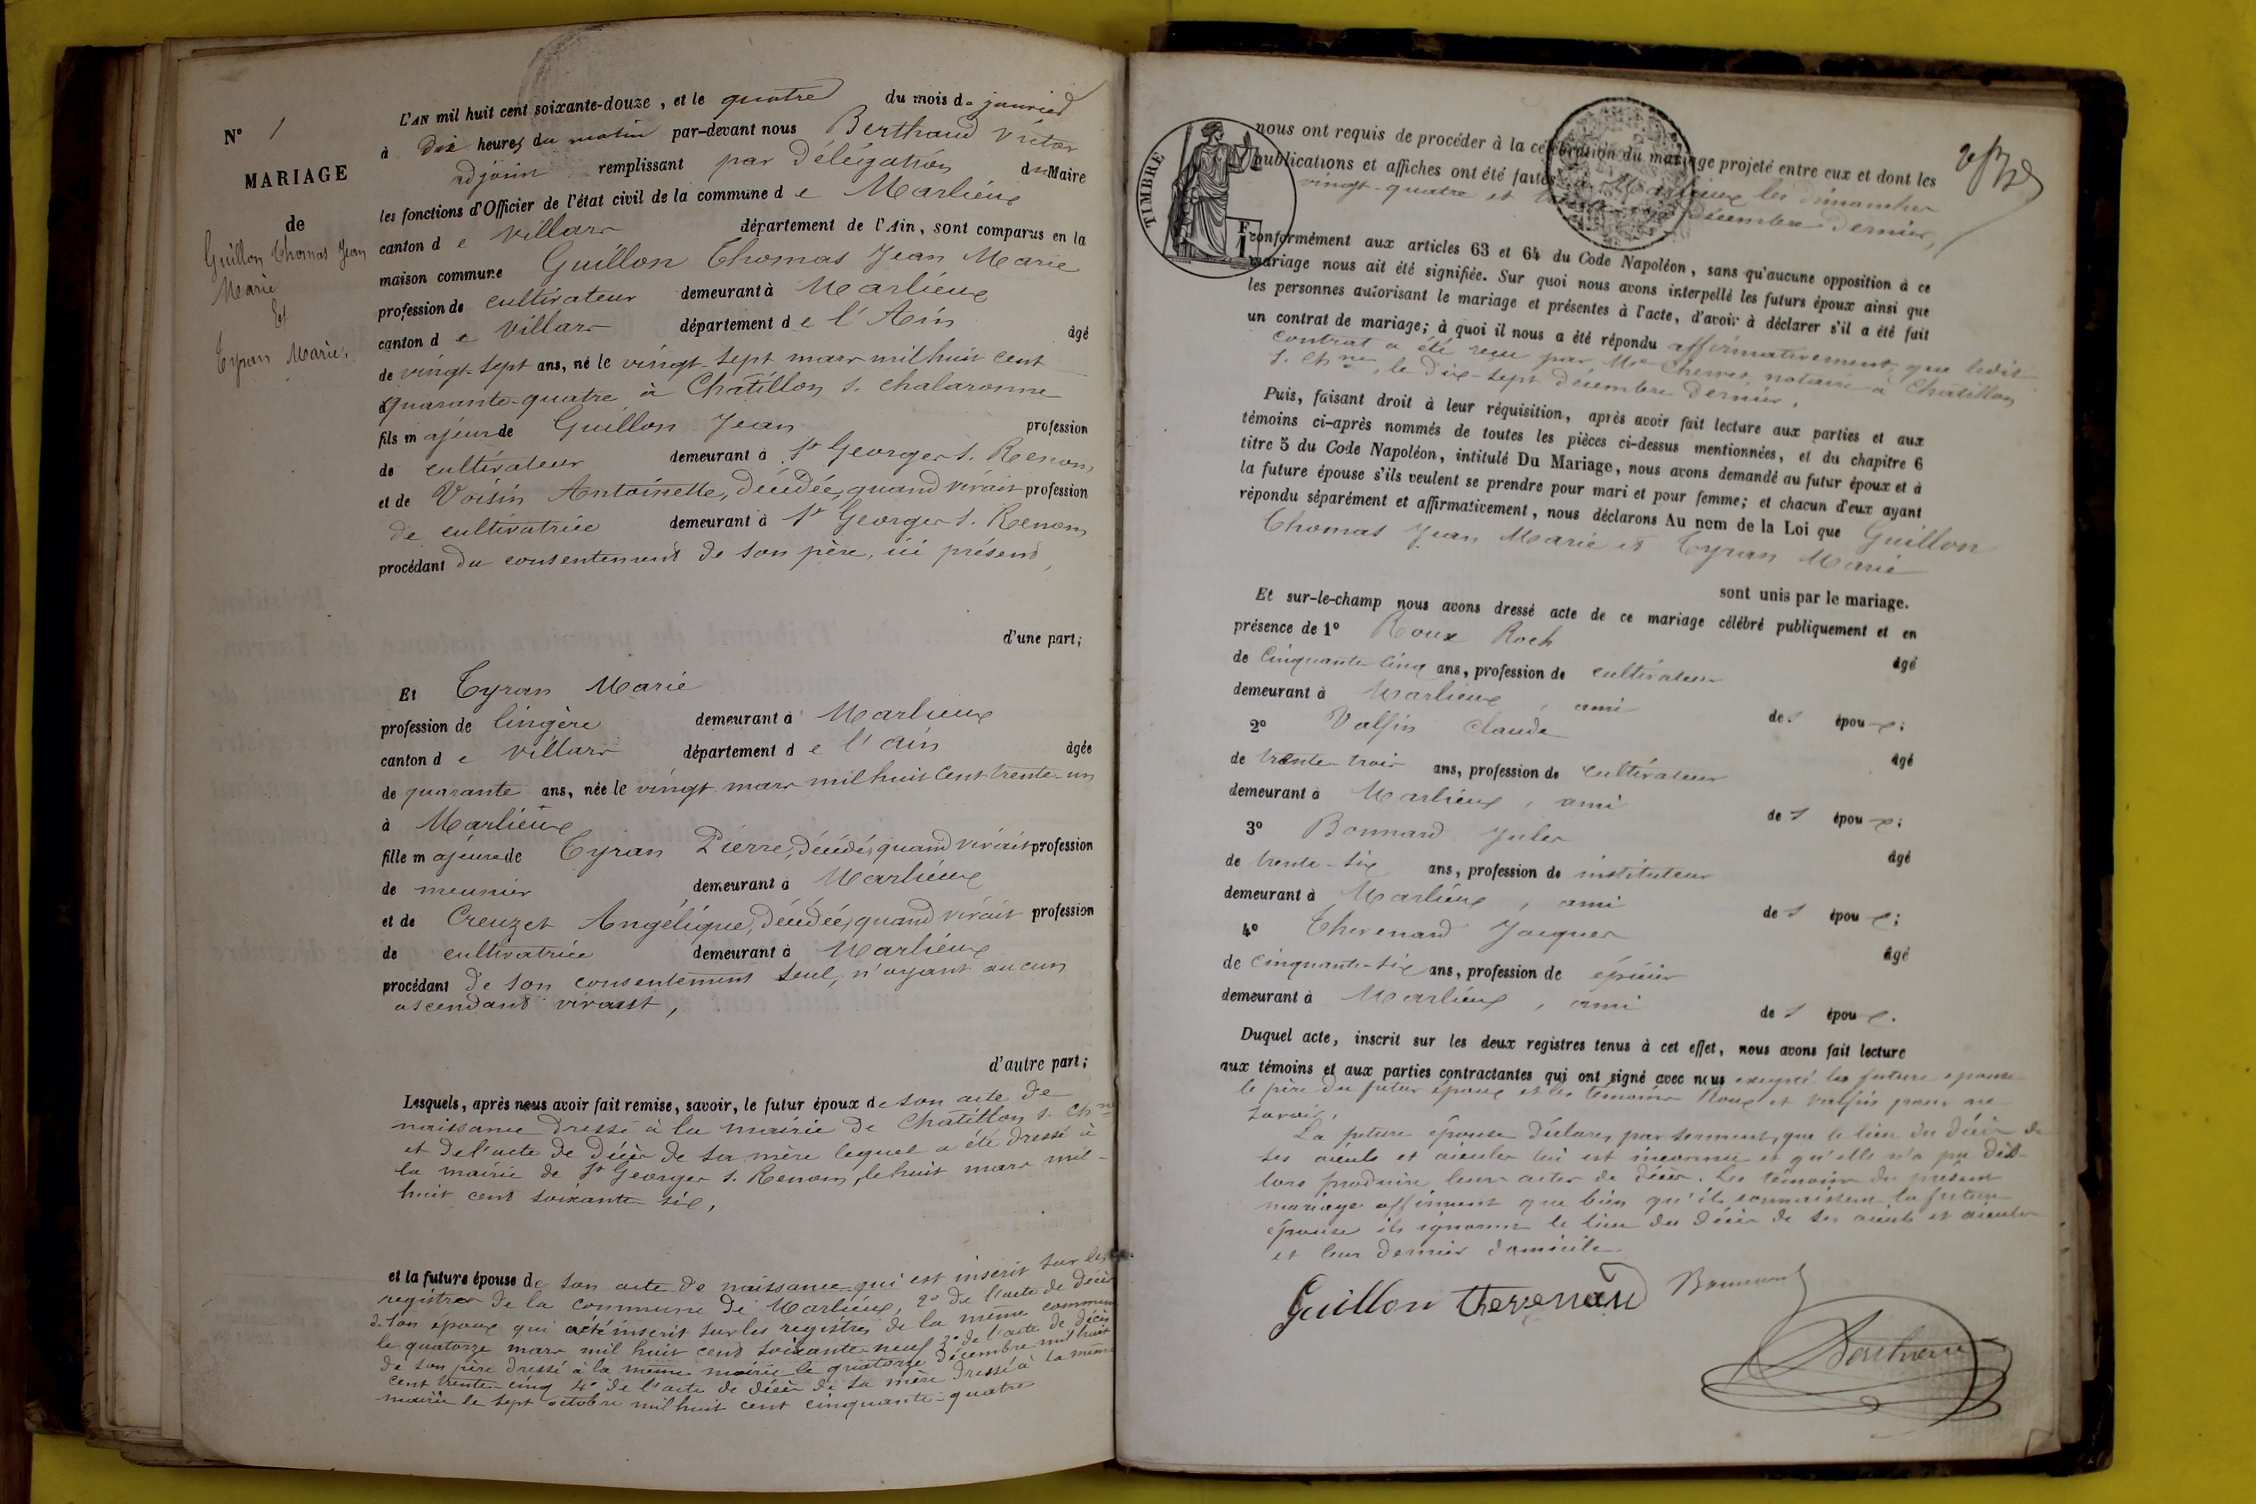 N° 1
MARIAGE
de
Guillon Thomas Jean
Marie
Et
Tyran Marie,
L'AN mil huit cent soixante-douze, et le quatre du mois de janvier
à Dix heures du matin par-devant nous Berthaud Victor
adjoint remplissant par Délégation du Maire
les fonctions d'Officier de l'état civil de la commune de Marlieux
canton de Villars département de l'Ain, sont comparus en la
maison commune Guillon Thomas Jean Marie
profession de cultivateur demeurant à Marlieux
canton de Villars département de l'Ain âgé
de vingt-sept ans, né le vingt-sept mars mil huit cent
quarante-quatre à Châtillon s. Chalaronne
fils majeur de Guillon Jean profession
de cultivateur demeurant à St Georges s. Renom,
et de Voisin Antoinette, décédée, quand vivait profession
de cultivatrice demeurant à St Georges s. Renom,
procédant du consentement de son père, ici présent,
d'une part;
Et Tyran Marie
profession de lingère demeurant à Marlieux
canton de Villars département de l'Ain âgée
de quarante ans, née le vingt mars mil huit cent trente-un
à Marlieux
fille majeure de Tyran Pierre, décédé, quand vivait profession
de meunier demeurant à Marlieux
et de Creuzet Angélique, décédée, quand vivait profession
de cultivatrice demeurant à Marlieux
procédant de son consentement seul, n'ayant aucun
ascendant vivant,
d'autre part;
Lesquels, après nous avoir fait remise, savoir, le futur époux de son acte de
naissance dressé à la mairie de Châtillon s. Chne
et de l'acte de décès de sa mère lequel a été dressé à
la mairie de St Georges s. Renom, le huit mars mil-
huit cent soixante-six,
et la future épouse de son acte de naissance qui est inscrit sur les
registres de la commune de Marlieux, 2° de l'acte de décès
de son époux qui a été inscrit sur les registres de la même commune
le quatorze mars mil huit cent soixante-neuf 3° de l'acte de décès
de son père dressé à la même mairie le quatorze décembre mil huit
cent trente-cinq 4° de l'acte de décès de sa mère dressé à la même
mairie le sept octobre mil huit cent cinquante-quatre
TIMBRE
nous ont requis de procéder à la célébration du mariage projeté entre eux et dont les
publications et affiches ont été faites à Marlieux les dimanches
vingt-quatre et décembre dernier,
conformément aux articles 63 et 64 du Code Napoléon, sans qu'aucune opposition à ce
mariage nous ait été signifiée. Sur quoi nous avons interpellé les futurs époux ainsi que
les personnes autorisant le mariage et présentes à l'acte, d'avoir à déclarer s'il a été fait
un contrat de mariage; à quoi il nous a été répondu affirmativement, que ledit
contrat a été reçu par Me notaire à Châtillon
s. Chne, le dix-sept décembre dernier.
Puis, faisant droit à leur réquisition, après avoir fait lecture aux parties et aux
témoins ci-après nommés de toutes les pièces ci-dessus mentionnées, et du chapitre 6
titre 5 du Code Napoléon, intitulé Du Mariage, nous avons demandé au futur époux et à
la future épouse s'ils veulent se prendre pour mari et pour femme; et chacun d'eux ayant
répondu séparément et affirmativement, nous déclarons Au nom de la Loi que Guillon
Thomas Jean Marie et Tyran Marie
sont unis par le mariage.
Et sur-le-champ nous avons dressé acte de ce mariage célébré publiquement et en
présence de 1° Roux Roch âgé
de cinquante cinq ans, profession de cultivateur
demeurant à Marlieux, ami des époux;
2° Valfin Claude âgé
de trente-trois ans, profession de cultivateur
demeurant à Marlieux, ami des époux;
3° Bonnard Jules âgé
de trente-six ans, profession de instituteur
demeurant à Marlieux, ami des époux;
4° Thevenard Jacques âgé
de cinquante-six ans, profession de épicier
demeurant à Marlieux, ami des époux.
Duquel acte, inscrit sur les deux registres tenus à cet effet, nous avons fait lecture
aux témoins et aux parties contractantes qui ont signé avec nous excepté la future épouse
le père du futur époux et les témoins Roux et Valfin pour ne
savoir.
La future épouse déclare, par serment, que le lieu du décès de
ses aïeuls et aïeules lui est inconnu et qu'elle n'a pu dès
lors produire leurs actes de décès. Les témoins du présent
mariage affirment que bien qu'ils connaissent la future
épouse ils ignorent le lieu du décès de ses aïeuls et aïeules
et leur dernier domicile
Guillon Thevenard Bonnard
Berthaud